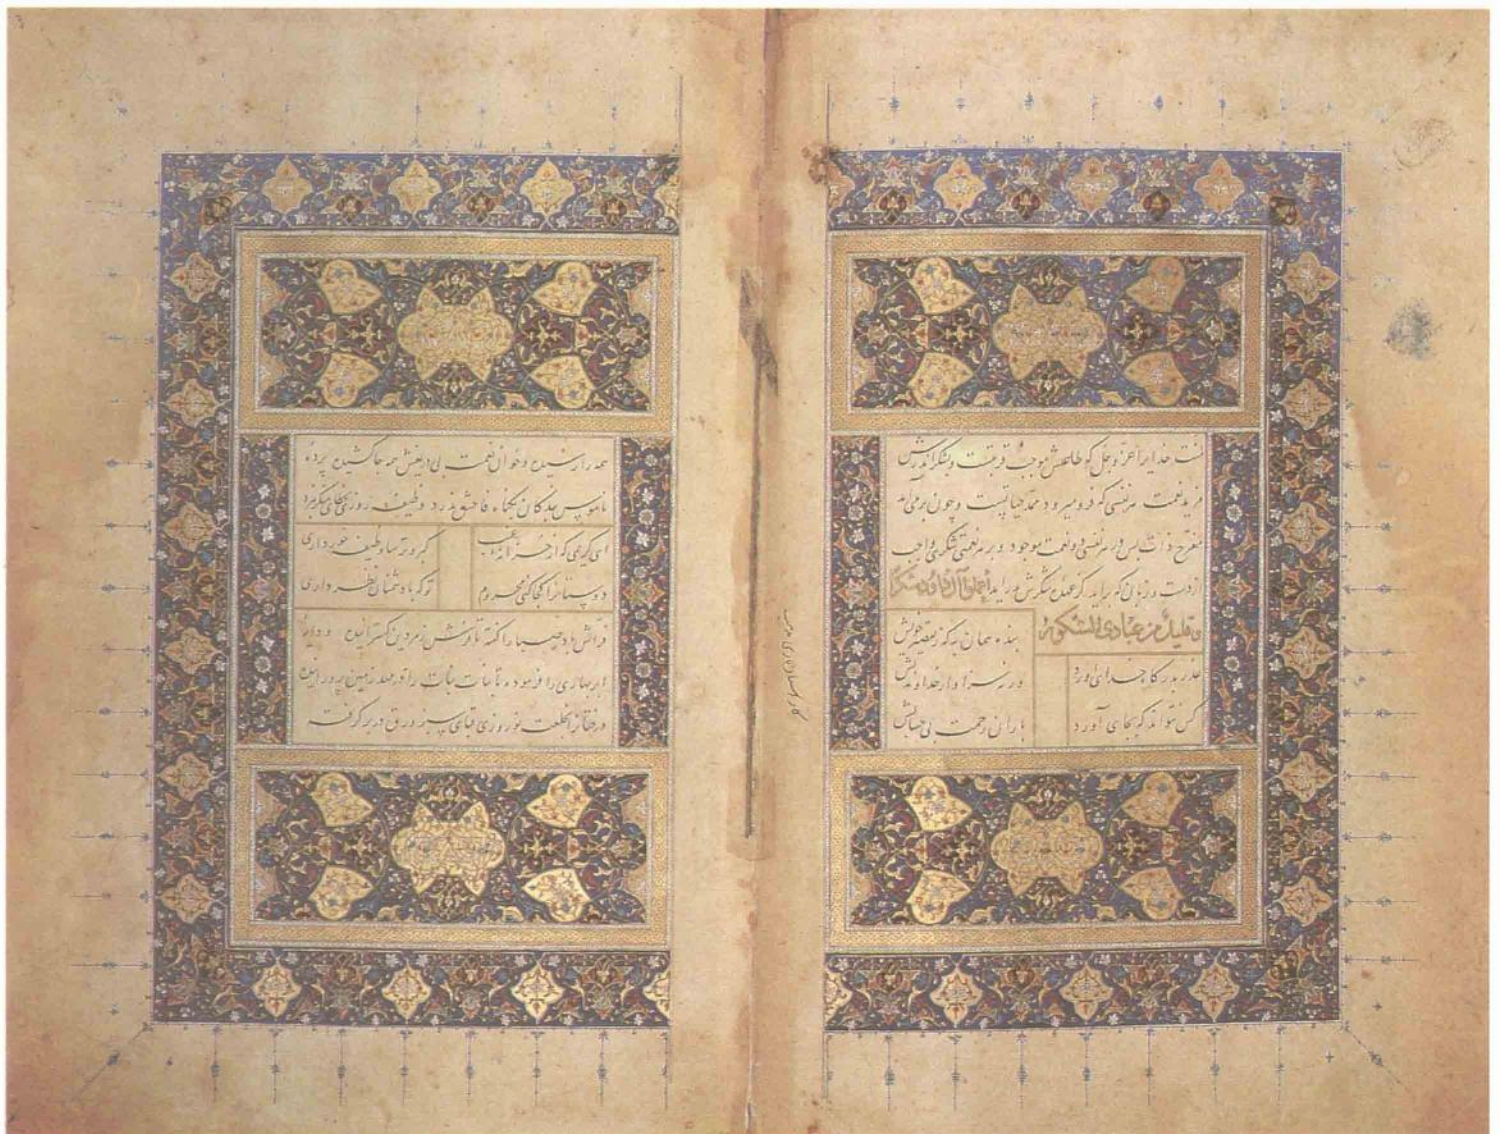 منت خدایرا عز و جل که طاعتش موجب قربتست و بشکر اندرش
مزید نعمت هر نفسی که فرو میرود ممد حیاتست و چون برمی آید
مفرح ذات پس در هر نفسی دو نعمت موجود و بر هر نعمتی شکری واجب
از دست و زبان که برآید کز عهده شکرش بدر آید اعملوا آل داود شکرا
و قلیل من عبادی الشکور بنده همان به که ز تقصیر خویش
عذر بدرگاه خدای آورد ورنه سزاوار خداوندیش
کس نتواند که بجای آورد باران رحمت بی حسابش
همه را رسیده و خوان نعمت بی دریغش همه جا کشیده پرده
ناموس بندگان بگناه فاحش ندرد و وظیفه روزی بخطای منکر نبرد
ای کریمی که از خزانه غیب گبر و ترسا وظیفه خور داری
دوستانرا کجا کنی محروم تو که با دشمنان نظر داری
فراش باد صبا را گفته تا فرش زمردین گستراند و دایه
ابر بهاری را فرموده تا بنات نبات را در مهد زمین بپروراند
درختانرا بخلعت نوروزی قبای سبز ورق در بر گرفته